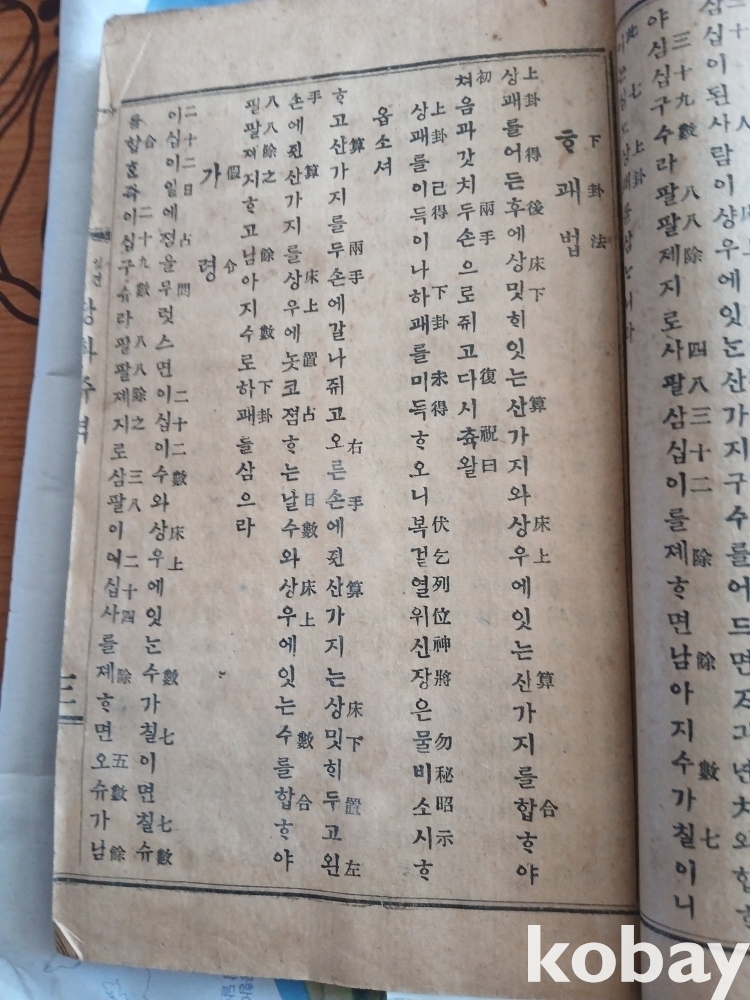 三十九數 八八除 四八三十二 除 餘 數 七
야십십구수라팔팔제지로사팔삼십이를제ᄒᆞ면남아지수가칠이니
下卦法
ᄒᆞ괘법
上卦 得 後 床下 算 床上 算 合
상괘를어든후에상밋히잇는산가지와상우에잇는산가지를합ᄒᆞ야
初 兩手 復 祝曰
처음과갓치두손으로쥐고다시츅왈
上卦 已得 下卦 未得 伏乞列位神將 勿秘昭示
상괘를이득이나하괘를미득ᄒᆞ오니복걸열위신장은물비소시ᄒᆞ
옵소셔
算 兩手 右手 算 床下 置 左
ᄒᆞ고산가지를두손에갈나쥐고오른손에쥔산가지는상밋히두고왼
手 算 床上 置 占 日數 床上 數 合
손에쥔산가지를상우에놋코졈ᄒᆞ는날수와상우에잇는수를합ᄒᆞ야
八八除之 餘數 下卦
팔팔졔지ᄒᆞ고남아지수로하괘를삼으라
假令
가령
二十二日 占 問 二十二數 床上 數 七 七數
이십이일에졈을무럿스면이십이수와상우에잇는수가칠이면칠슈
合 二十九數 八八除之 三八 二十四 除 五數 餘
를합ᄒᆞ즉이십구슈라팔팔졔지로삼팔이여십사를제ᄒᆞ면오슈가남
三
kobay